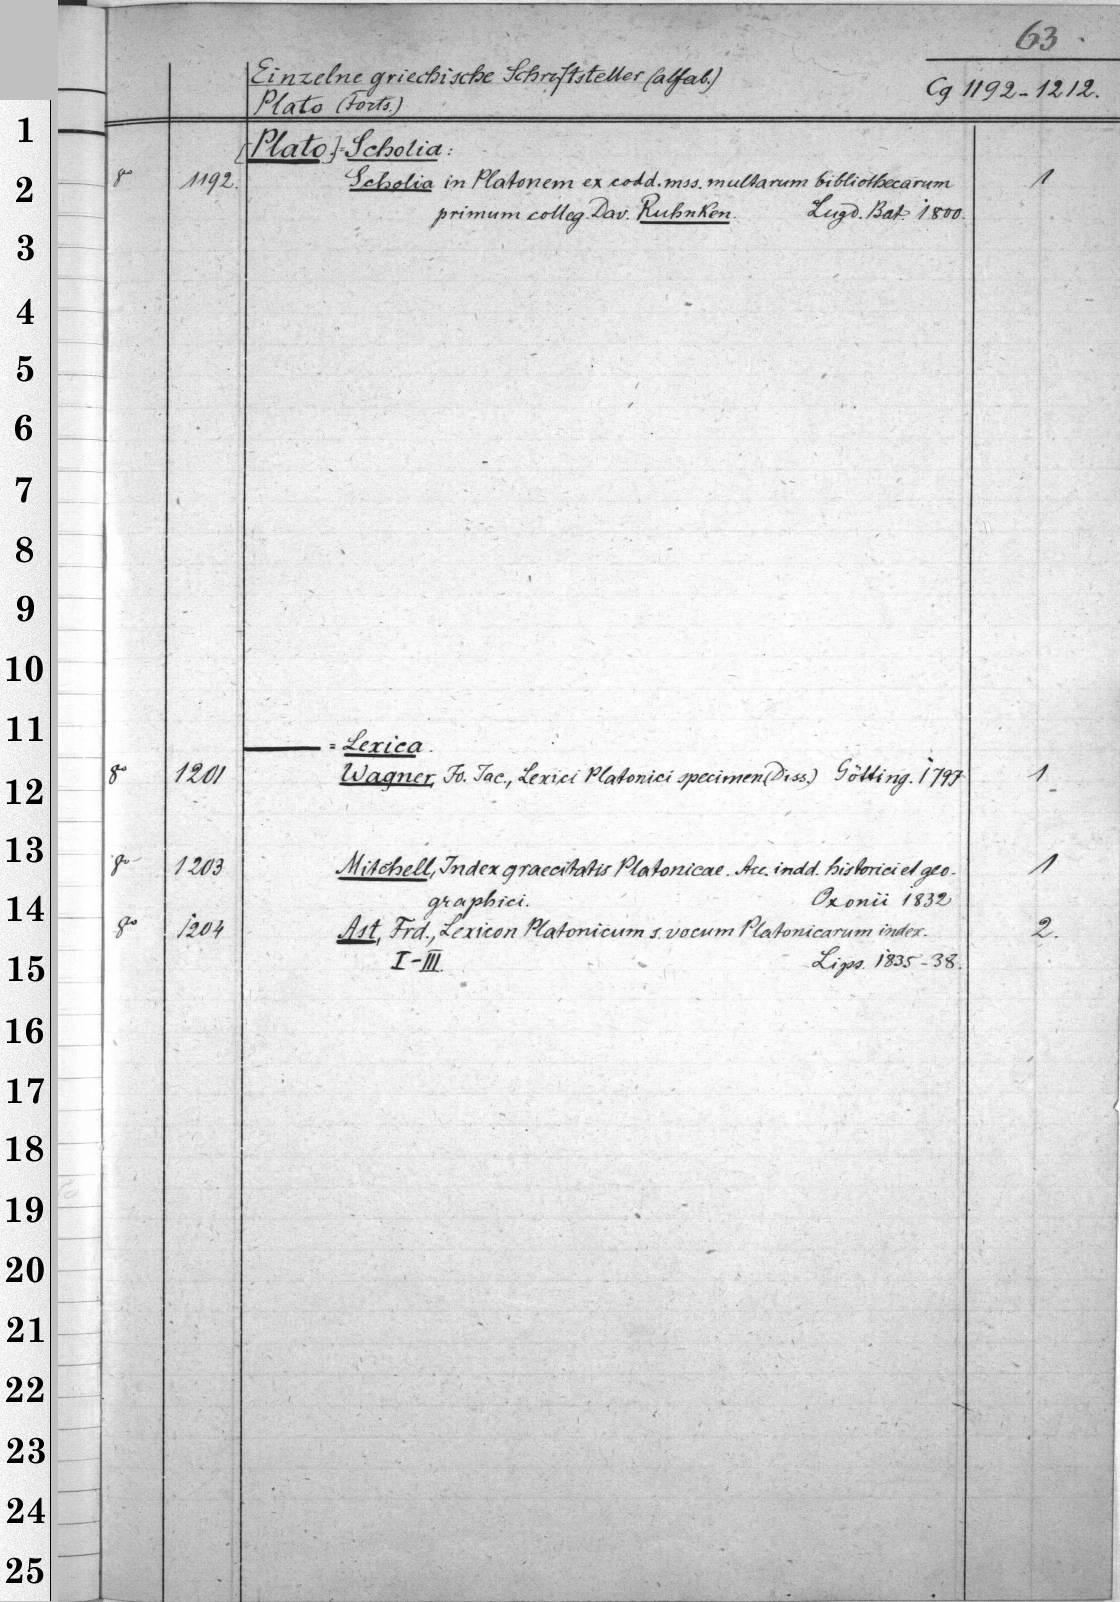 63.
Einzelne griechische Schriftsteller (alfab.)
Cg 1192-1212.
Plato (Forts.)
1
[Plato]=Scholia:
2
8o 1192. Scholia in Platonem ex codd. mss. multarum bibliothecarum 1
primum colleg. Dav. Ruhnken. Lugd. Bat. 1800.
3
4
5
6
7
8
9
10
11
——— = Lexica.
12
8o 1201 Wagner, Fo. Jac., Lexici Platonici specimen (Diss.) Götting. 1797 1
13
8o 1203 Mitchell, Index graecitatis Platonicae. Acc. indd. historici et geo- 1
14
graphici. Oxonii 1832
8o 1204 Ast, Frd., Lexicon Platonicum s. vocum Platonicarum index. 2.
15
I-III. Lips. 1835-38.
16
17
18
19
20
21
22
23
24
25